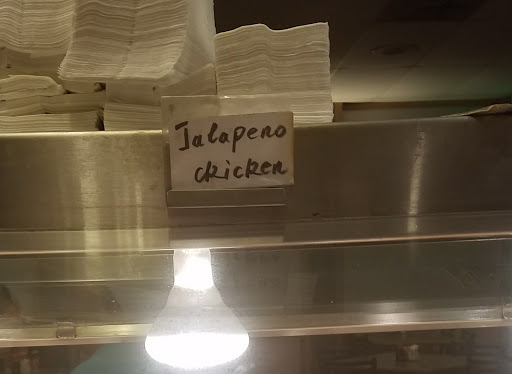 Jalapeno
chicken